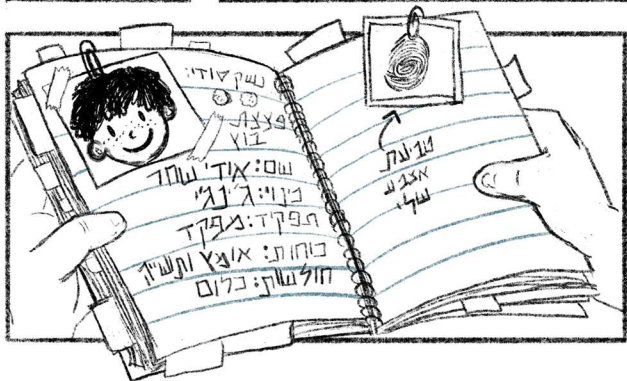 נשק סודי:
פצצת
בוץ
שם: אודי שחר
כינוי: ג'ינג'י
תפקיד: מפקד
כוחות: אומץ
חולשות: כלום
טביעת
אצבע
שלי